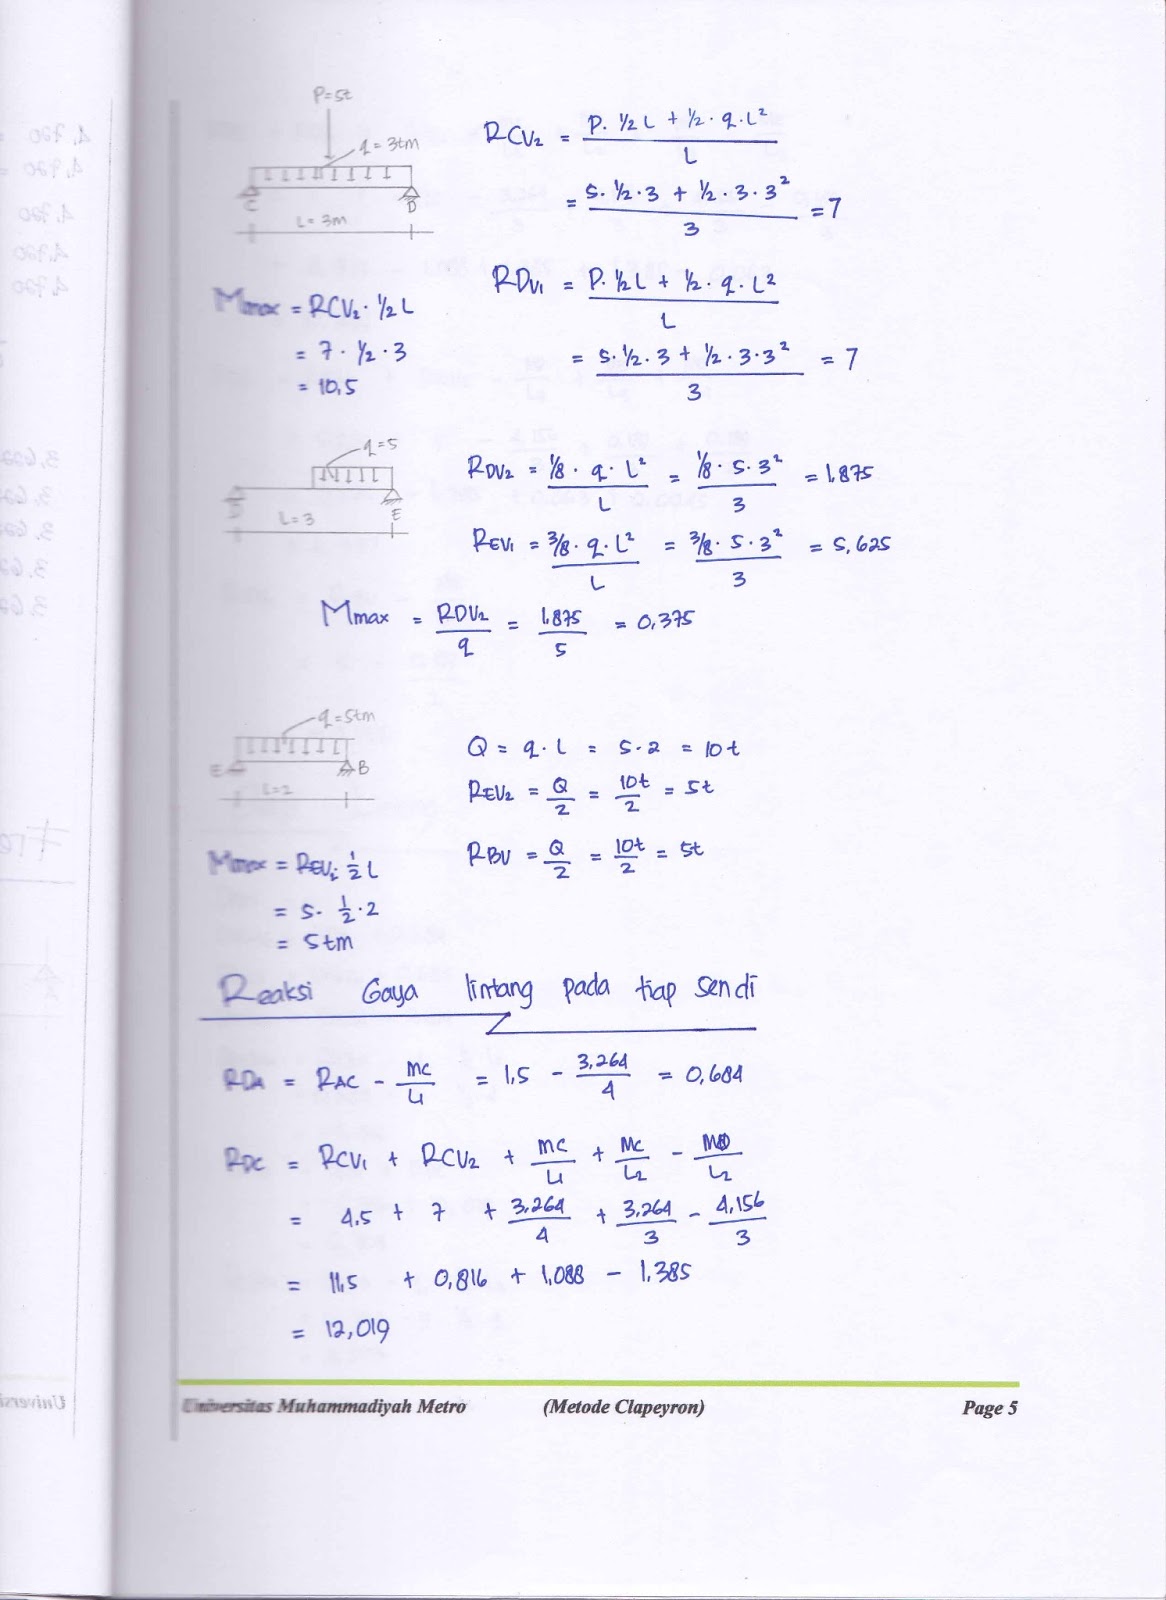 P=5t
q = 3tm
C
D
L= 3m
RCV₂ = (P. ½ L + ½ . q. L²) / L
= (5. ½ . 3 + ½ . 3 . 3²) / 3 = 7
RDV₁ = (P. ½ L + ½ . q. L²) / L
= (5. ½ . 3 + ½ . 3 . 3²) / 3 = 7
Mmax = RCV₂ . ½ L
= 7 . ½ . 3
= 10,5
q=5
D
E
L=3
RDV₂ = (⅛ . q . L²) / L = (⅛ . 5 . 3²) / 3 = 1,875
REV₁ = (⅜ . q . L²) / L = (⅜ . 5 . 3²) / 3 = 5,625
Mmax = RDV₂ / q = 1,875 / 5 = 0,375
q=5tm
E
B
L=2
Q = q . L = 5 . 2 = 10t
REV₂ = Q / 2 = 10t / 2 = 5t
RBV = Q / 2 = 10t / 2 = 5t
Mmax = REV₂ . ½ L
= 5 . ½ . 2
= 5tm
Reaksi Gaya lintang pada tiap sendi
RDA = RAC - MC / L1 = 1,5 - 3,264 / 4 = 0,684
RDC = RCV₁ + RCV₂ + MC / L1 + MC / L2 - MD / L2
= 4,5 + 7 + 3,264 / 4 + 3,264 / 3 - 4,156 / 3
= 11,5 + 0,816 + 1,088 - 1,385
= 12,019
Universitas Muhammadiyah Metro (Metode Clapeyron) Page 5